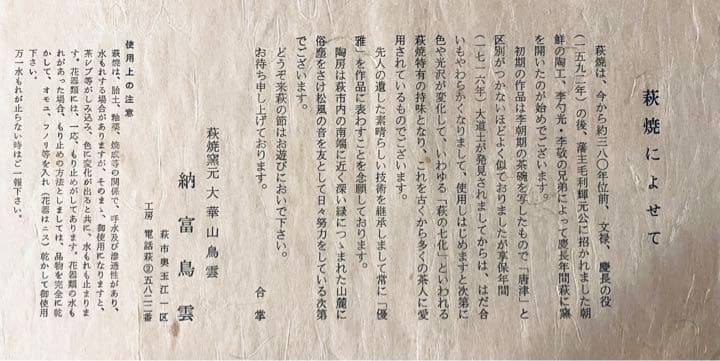 萩焼によせて
萩焼は、今から約三八〇年位前、文禄、慶長の役
(一五九二年)の後、藩主毛利輝元公に招かれました朝
鮮の陶工、李勺光・李敬の兄弟によって慶長年間萩に窯
を開いたのが始めでございます。
初期の作品は李朝期の茶碗を写したもので「唐津」と
区別がつかないほどよく似ておりましたが享保年間
(一七一六年)大道土が発見されましてからは、はだ合
いもやわらかくなりまして、使用しはじめますと次第に
色や光沢が変化して、いわゆる「萩の七化」といわれる
萩焼特有の持味となり、これを古くから多くの茶人に愛
用されているものでございます。
先人の遺した素晴らしい技術を継承しまして常に「優
雅」を作品に表わすことを念願しております。
陶房は萩市内の南端に近く深い緑につゝまれた山麓に
俗塵をさけ松風の音を友として日々努力をしている次第
でございます。
どうぞ来萩の節はお遊びにおいで下さい。
お待ち申し上げております。
合掌
萩焼窯元 大華山鳥雲
納富鳥雲
萩市奥玉江一区
工房 電話萩②五八二二番
使用上の注意
萩焼は、胎土、釉薬、焼成等の関係で、呼水及び滲透性があり、
水もれする場合がありますが、そのまゝ、御使用になりますと、
茶シブ等がしみ込み、色に変化が出ると共に、水もれも止まりま
す。花器類には、一応、もり止めがしてあります。花器類の水も
れがあった場合、もり止めの方法としましては、品物を完全に乾
かして、オモユ、フノリ等を入れ(花器はニス)乾かして御使用
下さい。
万一水もれが止らない時はご一報下さい。